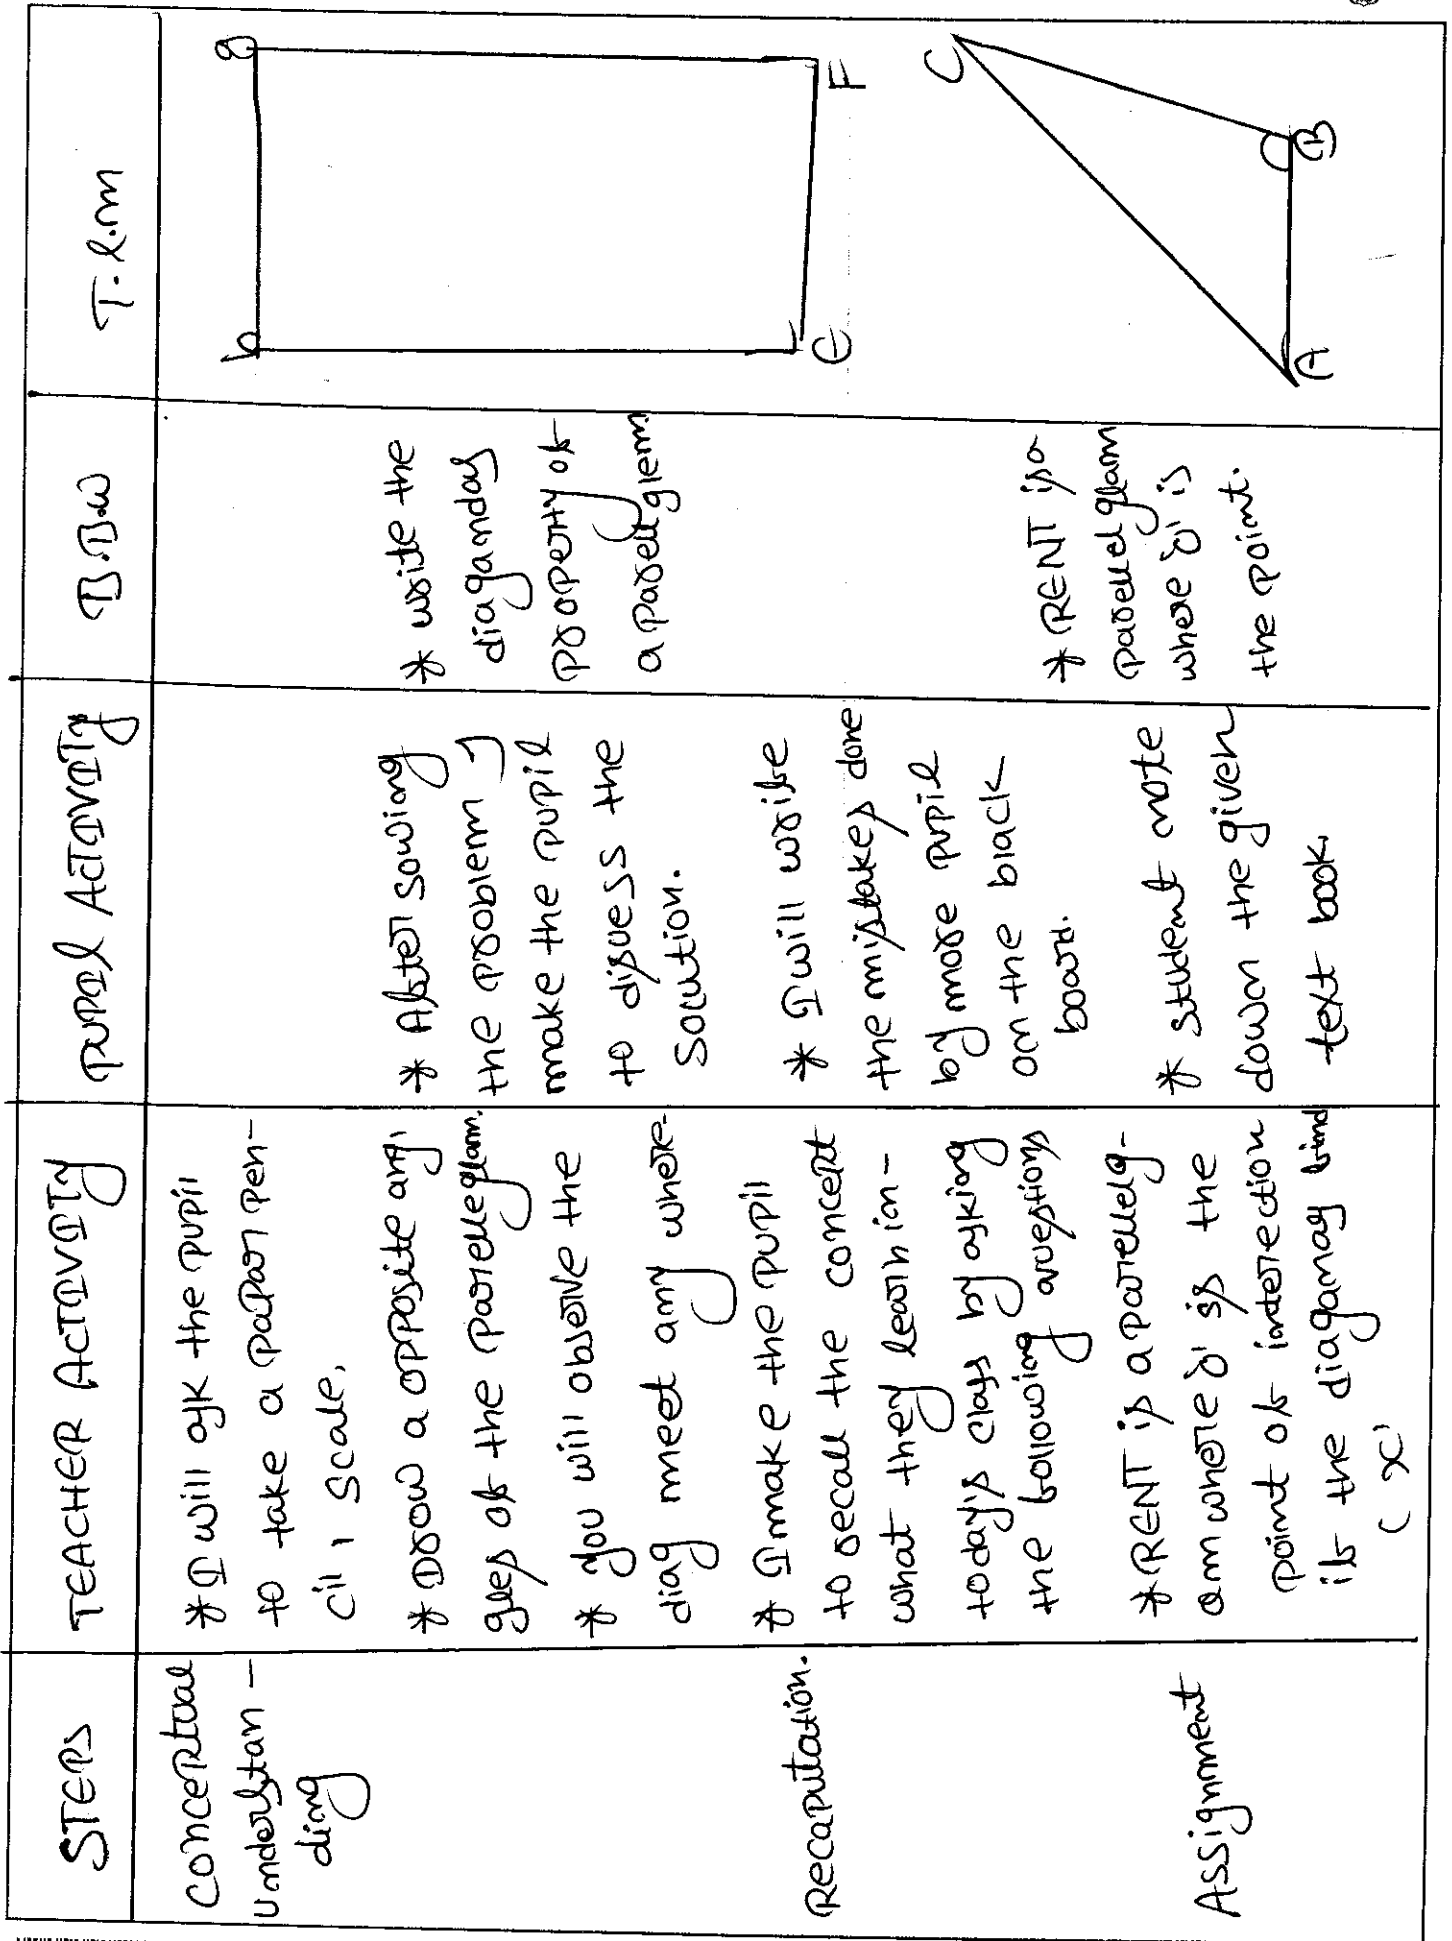 STEPS
TEACHER ACTIVITY
PUPIL ACTIVITY
B.B.W
T.l.m
conceptual
understan-
ding
* I will ask the pupil
to take a papar pen-
cil, scale,
* Drow a opposite ang,
gles of the parelleglam.
* you will observe the
diag meet any where
* After sowing
the problem I
make the pupil
to disuess the
solution.
* write the
diagandas
property of
a parellglem
D
G
E
F
Recaputation.
* I make the pupil
to recall the concept
what they learn in-
today's class by asking
the following questions
* I will write
the mistakes done
by more pupil
on the black
board.
Assignment
* RENT is a parellelg-
am where o' is the
point of interection
if the diaganas find
(x'
* student note
down the given
text book.
* RENT is a
parellelglam
where o' is
the point.
A
B
C